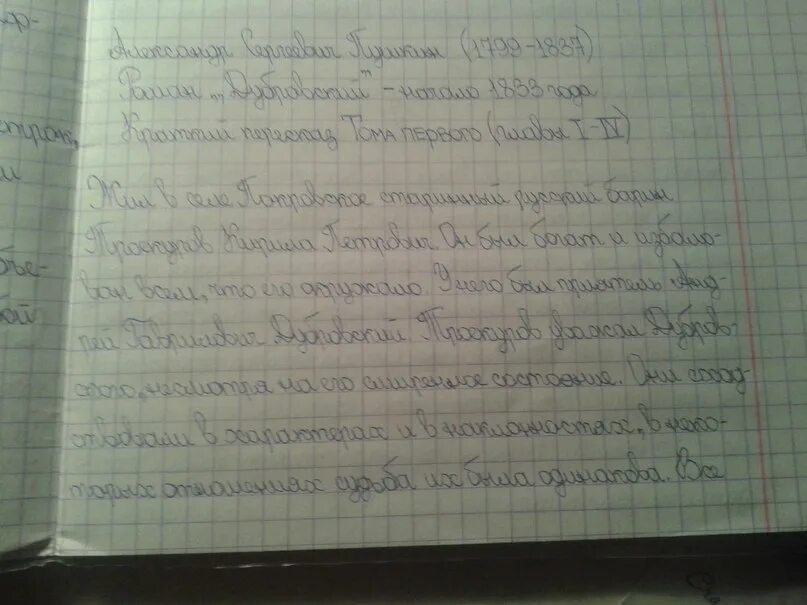 Александр Сергеевич Пушкин (1799-1837)
Роман „Дубровский" - начало 1833 года
Краткий пересказ Тома первого (главы I-IV)
Жил в селе Покровское старинный русский барин
Троекуров Кирила Петрович. Он был богат и избало-
ван всем, что его окружало. У него был приятель Анд-
рей Гаврилович Дубровский. Троекуров уважал Дубров-
ского, несмотря на его смиренное состояние. Они сход-
ствовали в характерах и в наклонностях, в неко-
торых отношениях судьба их была одинакова. Все